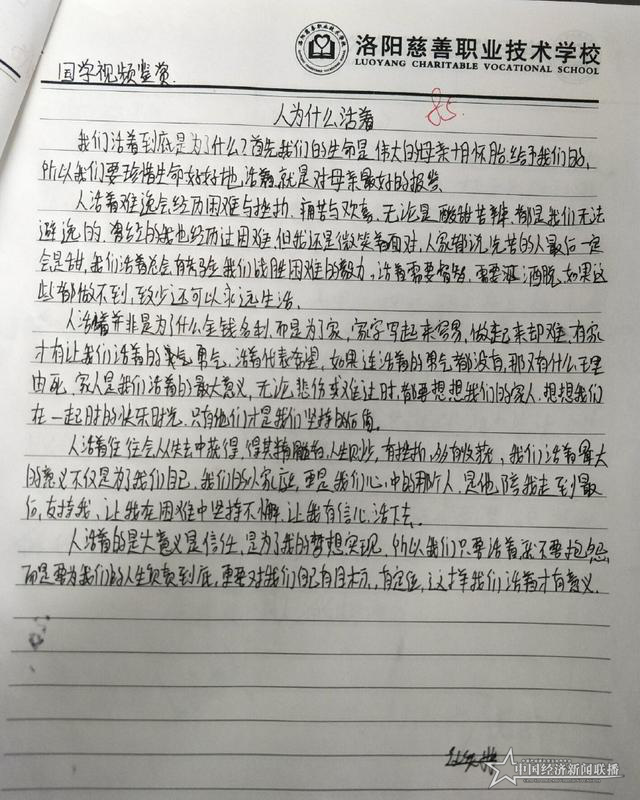 洛阳慈善职业技术学校
LUOYANG CHARITABLE VOCATIONAL SCHOOL
国学视频鉴赏
85
人为什么活着
我们活着到底是为了什么?首先我们的生命是伟大的母亲十月怀胎给予我们的,
所以我们要珍惜生命好好地活着,就是对母亲最好的报答
人活着难免会经历困难与挫折,痛苦与欢喜,无论是酸甜苦辣,都是我们无法
避免的,曾经的我也经历过困难,但我还是微笑着面对,人家都说先苦的人最后一定
会是甜,我们活着总会有考验我们战胜困难的毅力,活着需要睿智,需要洒脱,如果这
些都做不到,致少还可以永远生活.
人活着并非是为了什么金钱名利,而是为了家,家字写起来容易,做起来却难,有家
才有让我们活着的勇气,活着代表希望,如果连活着的勇气都没有,那又有什么理
由死,家人是我们活着的最大意义,无论悲伤或难过时,都要想想我们的家人,想想我们
在一起时的快乐时光,只有他们才是我们坚持的后盾.
人活着往往会从失去中获得,得其精髓的人生,有挫折,必有收获,我们活着最大
的意义不仅是为了我们自己,我们的家庭,更是我们心中的那个人,是他陪我走到最
后,支持我,让我在困难中坚持不懈,让我有信心活下去.
人活着的最大意义是信任,是为了我的梦想实现,所以我们只要活着就不要抱怨,
而是要为我们的人生负责到底,更要对我们自己有目标,有定位,这样我们活着才有意义.
中国经济新闻联播